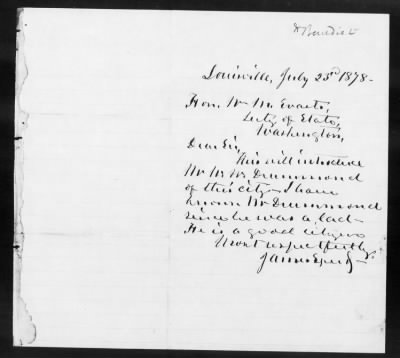 Benedict
Louisville, July 23d 1878-
Hon. Wm M. Evarts,
Secty of State,
Washington,
Dear Sir,
This will introduce
Mr W. W. Drummond
of this city - I have
known Mr Drummond
since he was a lad -
He is a good citizen
Most respectfully,
James